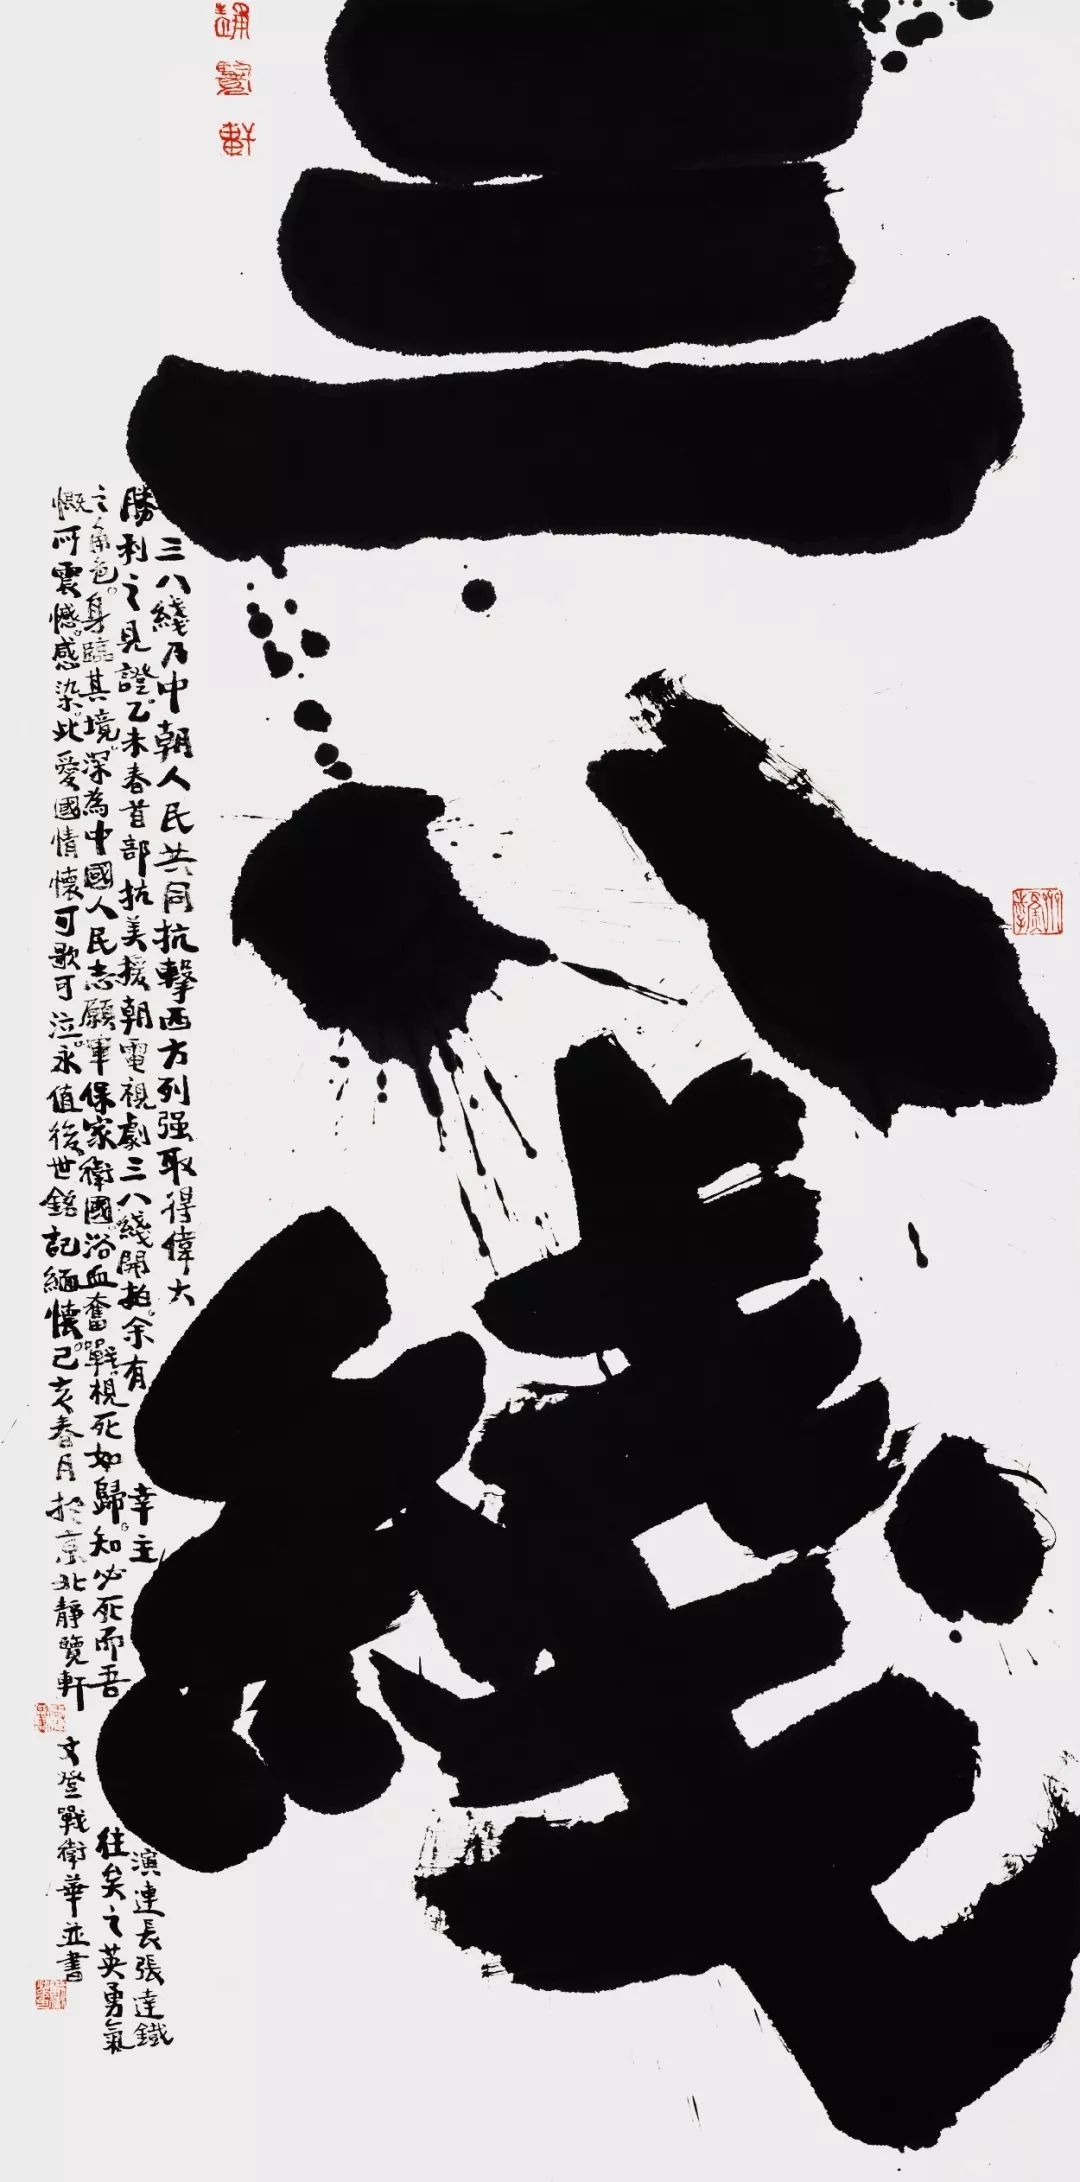 三八綫
靜覽軒
三八綫乃中朝人民共同抗擊西方列强取得偉大
勝利之見證。乙未春首部抗美援朝電視劇三八綫開拍。余有幸主演連長張達鐵
之角色。身臨其境。深為中國人民志願軍保家衛國浴血奮戰。視死如歸。知必死而吾往矣之英勇氣
慨所震憾。感染。此愛國情懷可歌可泣。永值後世銘記緬懷。己亥春月於京北靜覽軒文登戰衛華並書